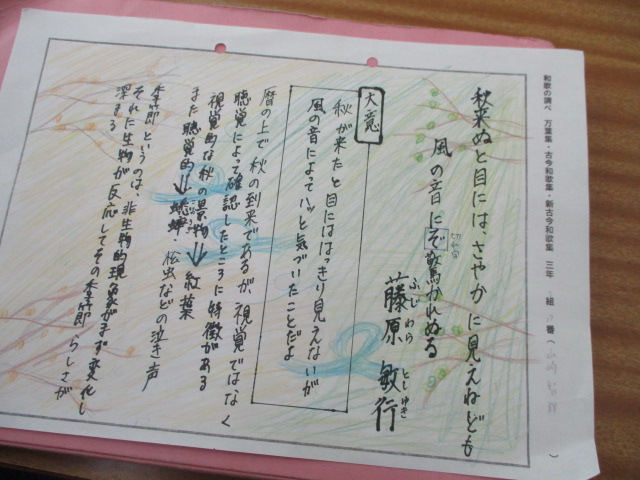 和歌の調べ 万葉集・古今和歌集・新古今和歌集 三年 組 番( )
秋来ぬと目には、さやかに見えねども
風の音にぞ驚かれぬる
藤原敏行
ふじわら としゆき
大意
秋が来たと目にははっきり見えないが
風の音によってハッと気づいたことだよ
暦の上で秋の到来であるが、視覚ではなく
聴覚によって確認したところに特徴がある
視覚的な秋の景物⇒紅葉
また聴覚的⇒蟋蟀・松虫などの泣き声
季節というのは、非生物的現象がまず変化し
それに生物が反応してその季節らしさが
深まる